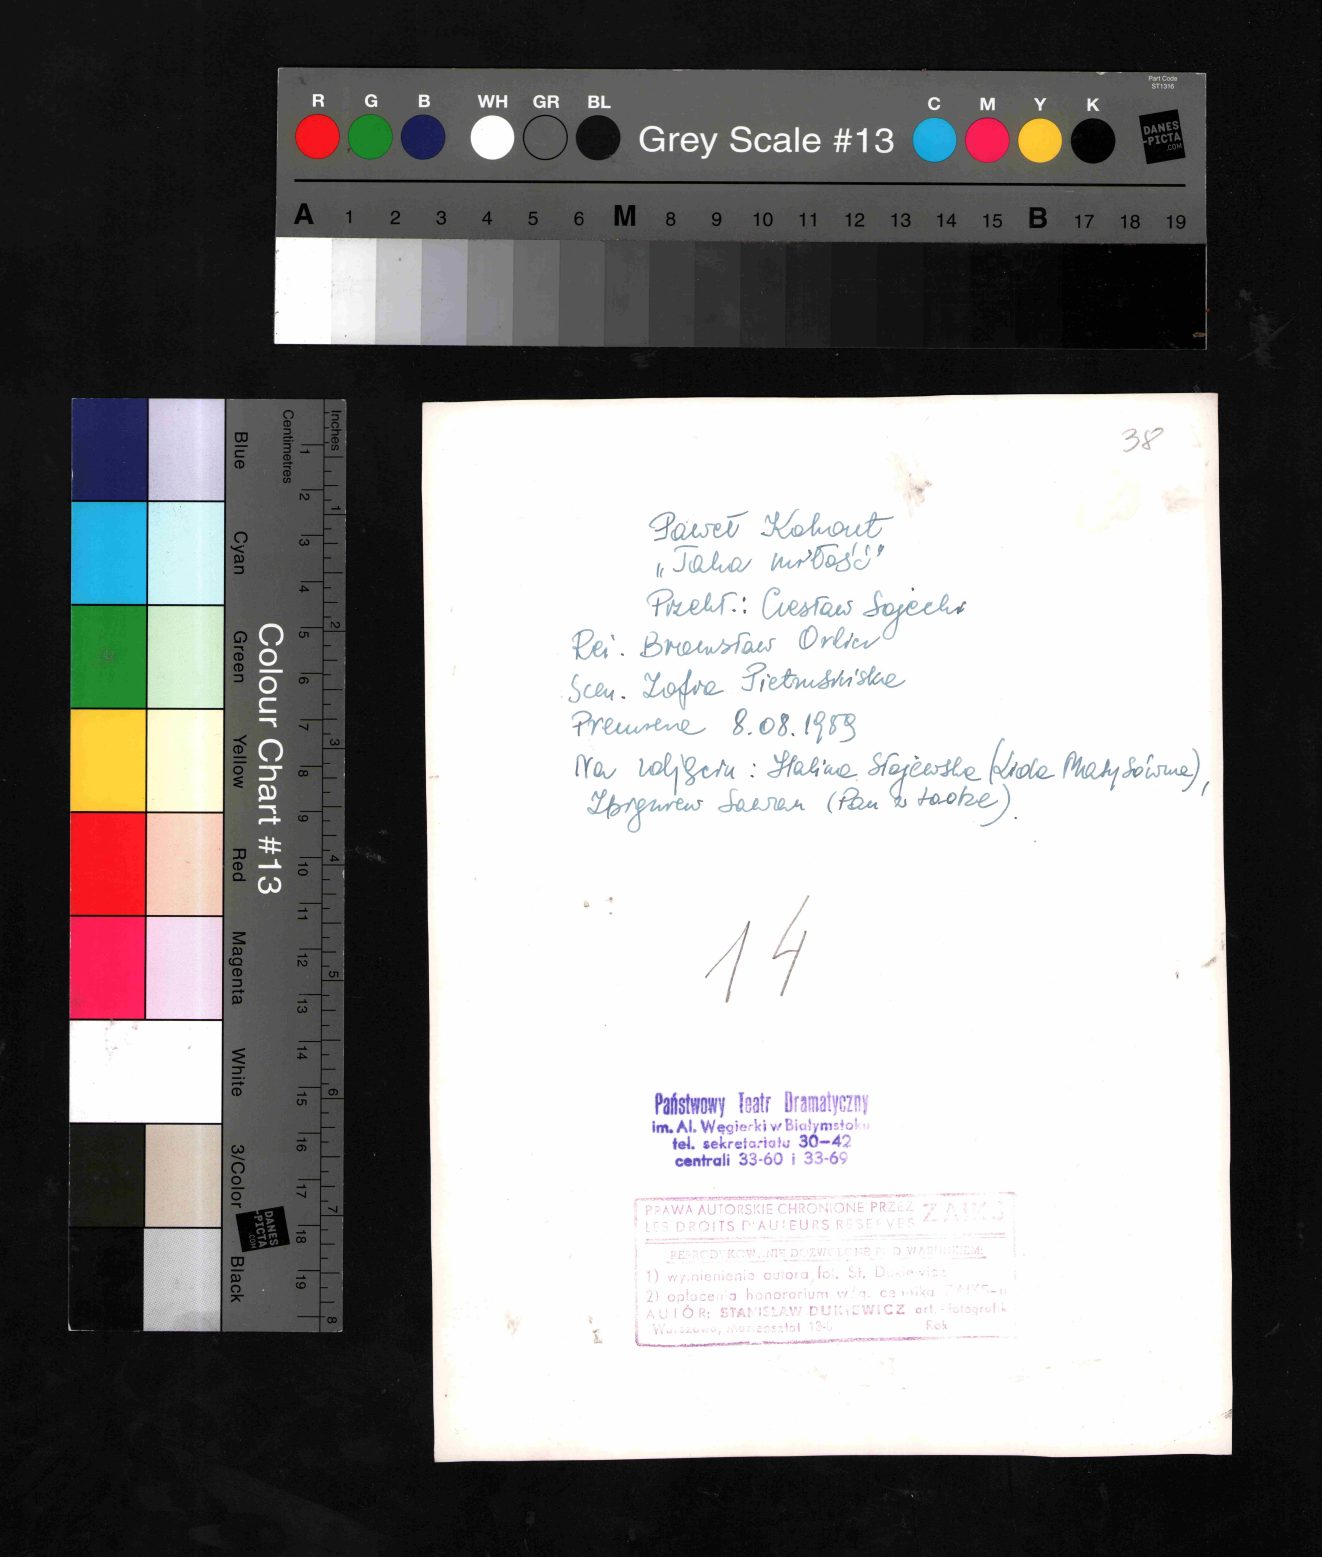 Part Code
ST1316
R G B WH GR BL Grey Scale #13 C M Y K
DANES
-PICTA
.COM
A 1 2 3 4 5 6 M 8 9 10 11 12 13 14 15 B 17 18 19
Blue
Cyan
Green
Yellow
Red
Magenta
White
3/Color
Black
Colour Chart #13
DANES
-PICTA
.COM
Centimetres
1 2 3 4 5 6 7 8 9 10 11 12 13 14 15 16 17 18 19
Inches
1 2 3 4 5 6 7 8
38
Paweł Kohout
„Taka miłość"
Przekł.: Czesław Sojecki
Reż. Bronisław Orlicz
Scen. Zofia Pietrusińska
Premiera 8.08.1959
Na zdjęciu: Halina Stajewska (Lida Matysówna),
Zbigniew Sawan (Pan w todze).
14
Państwowy Teatr Dramatyczny
im. Al. Węgierki w Białymstoku
tel. sekretariatu 30-42
centrali 33-60 i 33-69
PRAWA AUTORSKIE CHRONIONE PRZEZ ZAIKS
LES DROITS D'AUTEURS RESERVES
REPRODUKOWANIE DOZWOLONE POD WARUNKIEM:
1) wymienienia autora fot. St. Dukiewicz
2) opłacenia honorarium w/g. cennika ZAIKS-u
AUTOR: STANISŁAW DUKIEWICZ art. fotografik
Warszawa, Mariensztat Rok